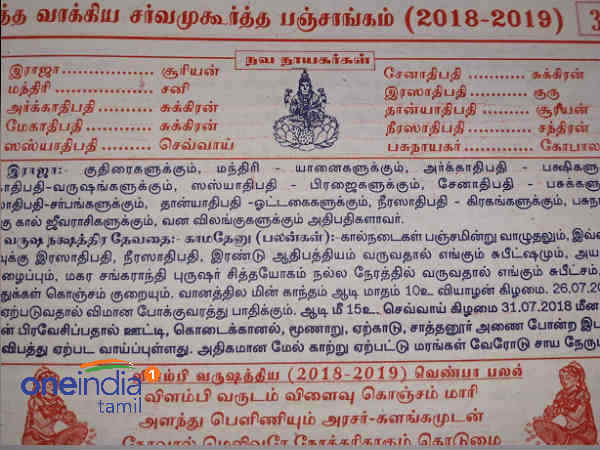 த்த வாக்கிய சர்வமுகூர்த்த பஞ்சாங்கம் (2018-2019)
நவ நாயகர்கள்
இராஜா ................ சூரியன்
மந்திரி ................ சனி
அர்க்காதிபதி ......... சுக்கிரன்
மேகாதிபதி ........... சுக்கிரன்
ஸஸ்யாதிபதி ........ செவ்வாய்
சேனாதிபதி .......... சுக்கிரன்
இரஸாதிபதி ......... குரு
தான்யாதிபதி ........ சூரியன்
நீரஸாதிபதி .......... சந்திரன்
பசுநாயகர் ........... கோபால
இராஜா:- குதிரைகளுக்கும், மந்திரி - யானைகளுக்கும், அர்க்காதிபதி - பக்ஷிகளு
ாதிபதி-வருஷங்களுக்கும், ஸஸ்யாதிபதி - பிரஜைகளுக்கும், சேனாதிபதி - பசுக்களு
ஸாதிபதி-சர்பங்களுக்கும், தான்யாதிபதி -ஒட்டகைகளுக்கும், நீரஸாதிபதி - கிரகங்களுக்கும், பசுநா
கு கால் ஜீவராசிகளுக்கும், வன விலங்குகளுக்கும் அதிபதிகளாவர்.
வருஷ நக்ஷத்திர தேவதை:- காமதேனு (பலன்கள்):-கால்நடைகள் பஞ்சமின்றி வாழுதலும், இவ்
புக்கு இரஸாதிபதி, நீரஸாதிபதி, இரண்டு ஆதிபத்தியம் வருவதால் எங்கும் சுபீட்ஷமும், அய
ழைப்பும், மகர சங்கராந்தி புருஷர் சித்தயோகம் நல்ல நேரத்தில் வருவதால் எங்கும் சுபீட்சம்,
துக்கள் கொஞ்சம் குறையும், வானத்தில மின் காந்தம் ஆடி மாதம் 10உ வியாழன் கிழமை. 26.07.20
ஏற்படுவதால் விமான போக்குவரத்து பாதிக்கும். ஆடி மீ 15உ. செவ்வாய் கிழமை 31.07.2018 மீன
ள் பிரவேசிப்பதால் ஊட்டி, கொடைக்கானல், மூணாறு, ஏற்காடு, சாத்தனூர் அணை போன்ற இட
விபத்து ஏற்பட வாய்ப்புள்ளது. அதிகமான மேல் காற்று ஏற்பட்டு மரங்கள் வேரோடு சாய நேரும்
ம்பி வருஷத்திய (2018-2019) வெண்பா பலன்
விளம்பி வருடம் விளைவு கொஞ்சம் மாரி
அளந்து பெளிணியும் அரசர்-களங்கமுடன்
oneindia 1
தமிழ்